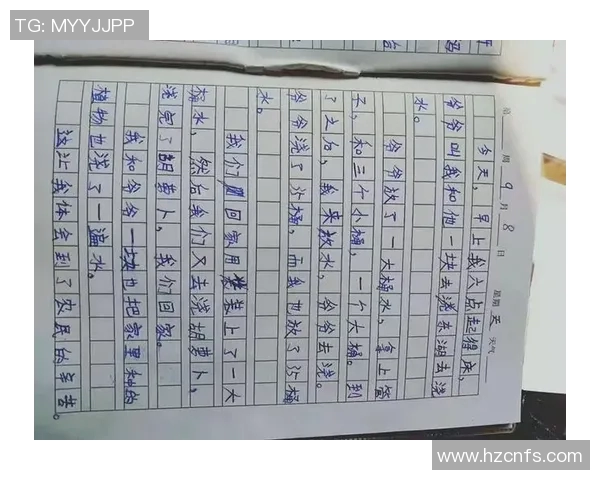 TG: MYYJJPP
周 9 月 8 日 星期 天 天气
今天,早上我六点起得床,
爷爷叫我和他一块去浇东湖去浇
水。
爷爷放了一大桶水,拿上管
子,和三个小桶,一个大桶。到
了之后,我来放水,爷爷去浇。
爷爷浇了35桶,而我也放了35桶
水。
我们回家用装上了一大
桶水,然后我们又去浇胡萝卜,
浇完了胡萝卜,我们回家。
我和爷爷一块也把家里种的
植物也浇了一遍水。
这让我体会到了农民的辛苦。
www.hzcnfs.com